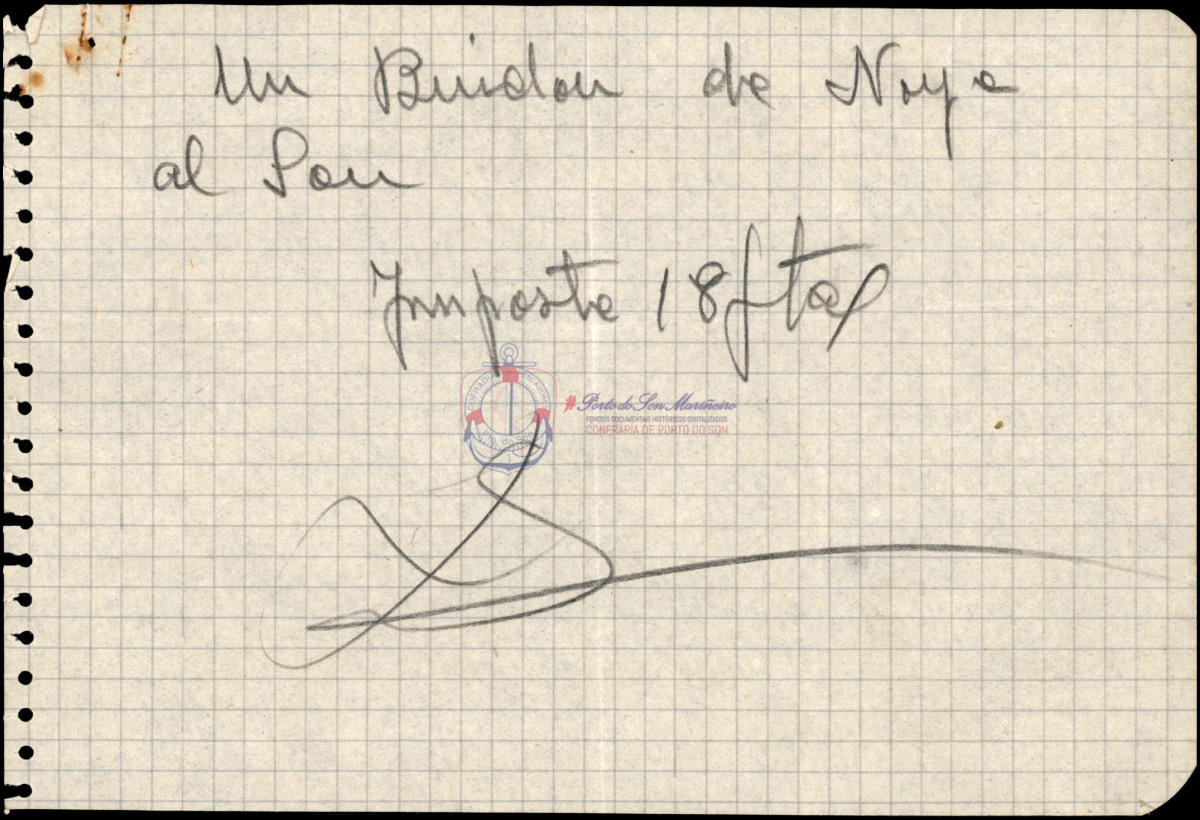 Un Buidon de Noya
al Son
Imposte 18 ptas
#Porto do Son Mariñeiro
FONDOS DOCUMENTAIS HISTÓRICOS DIGITALIZADOS
CONFRARIA DE PORTO DO SON